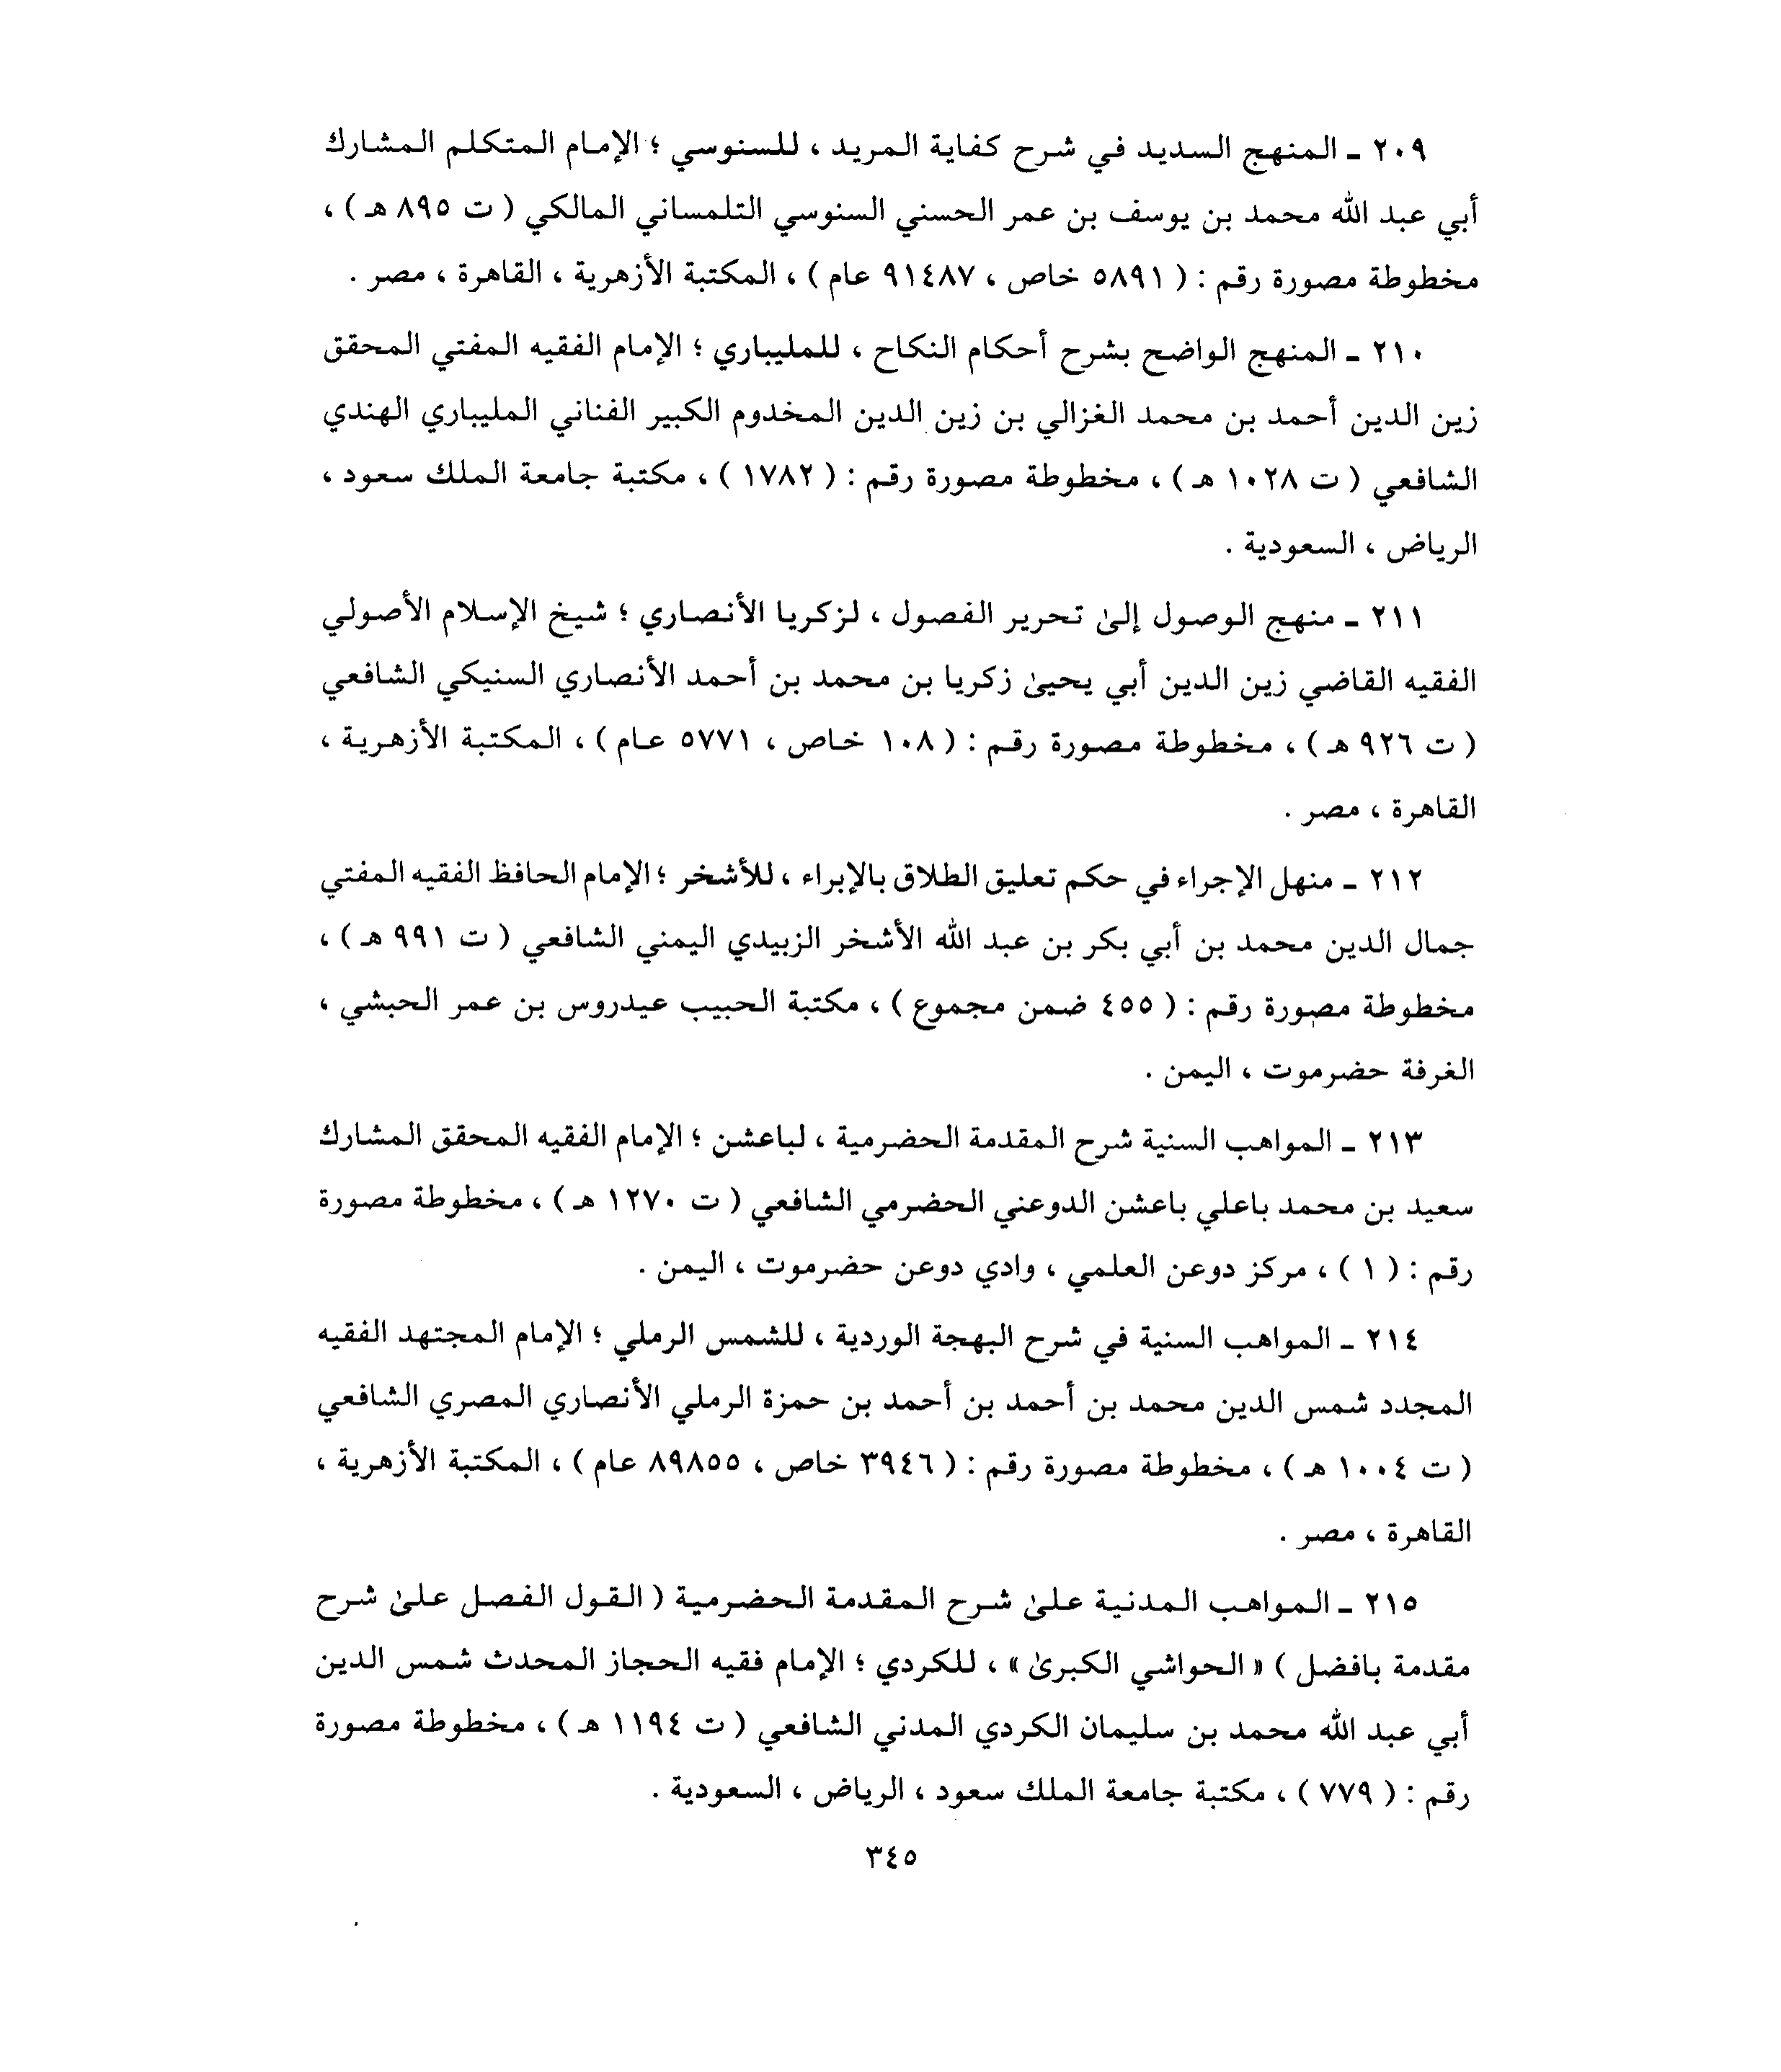 ٢٠٩ ـ المنهج السديد في شرح كفاية المريد ، للسنوسي ؛ الإمام المتكلم المشارك
أبي عبد الله محمد بن يوسف بن عمر الحسني السنوسي التلمساني المالكي ( ت ٨٩٥ هـ ) ،
مخطوطة مصورة رقم : ( ٥٨٩١ خاص ، ٩١٤٨٧ عام ) ، المكتبة الأزهرية ، القاهرة ، مصر .
٢١٠ ـ المنهج الواضح بشرح أحكام النكاح ، للمليباري ؛ الإمام الفقيه المفتي المحقق
زين الدين أحمد بن محمد الغزالي بن زين الدين المخدوم الكبير الفناني المليباري الهندي
الشافعي ( ت ١٠٢٨ هـ ) ، مخطوطة مصورة رقم : ( ١٧٨٢ ) ، مكتبة جامعة الملك سعود ،
الرياض ، السعودية .
٢١١ ـ منهج الوصول إلىٰ تحرير الفصول ، لزكريا الأنصاري ؛ شيخ الإسلام الأصولي
الفقيه القاضي زين الدين أبي يحيىٰ زكريا بن محمد بن أحمد الأنصاري السنيكي الشافعي
( ت ٩٢٦ هـ ) ، مخطوطة مصورة رقم : ( ١٠٨ خاص ، ٥٧٧١ عام ) ، المكتبة الأزهرية ،
القاهرة ، مصر .
٢١٢ ـ منهل الإجراء في حكم تعليق الطلاق بالإبراء ، للأشخر ؛ الإمام الحافظ الفقيه المفتي
جمال الدين محمد بن أبي بكر بن عبد الله الأشخر الزبيدي اليمني الشافعي ( ت ٩٩١ هـ ) ،
مخطوطة مصورة رقم : ( ٤٥٥ ضمن مجموع ) ، مكتبة الحبيب عيدروس بن عمر الحبشي ،
الغرفة حضرموت ، اليمن .
٢١٣ ـ المواهب السنية شرح المقدمة الحضرمية ، لباعشن ؛ الإمام الفقيه المحقق المشارك
سعيد بن محمد باعلي باعشن الدوعني الحضرمي الشافعي ( ت ١٢٧٠ هـ ) ، مخطوطة مصورة
رقم : ( ١ ) ، مركز دوعن العلمي ، وادي دوعن حضرموت ، اليمن .
٢١٤ ـ المواهب السنية في شرح البهجة الوردية ، للشمس الرملي ؛ الإمام المجتهد الفقيه
المجدد شمس الدين محمد بن أحمد بن أحمد بن حمزة الرملي الأنصاري المصري الشافعي
( ت ١٠٠٤ هـ ) ، مخطوطة مصورة رقم : ( ٣٩٤٦ خاص ، ٨٩٨٥٥ عام ) ، المكتبة الأزهرية ،
القاهرة ، مصر .
٢١٥ ـ المواهب المدنية علىٰ شرح المقدمة الحضرمية ( القول الفصل علىٰ شرح
مقدمة بافضل ) « الحواشي الكبرىٰ » ، للكردي ؛ الإمام فقيه الحجاز المحدث شمس الدين
أبي عبد الله محمد بن سليمان الكردي المدني الشافعي ( ت ١١٩٤ هـ ) ، مخطوطة مصورة
رقم : ( ٧٧٩ ) ، مكتبة جامعة الملك سعود ، الرياض ، السعودية .
٣٤٥